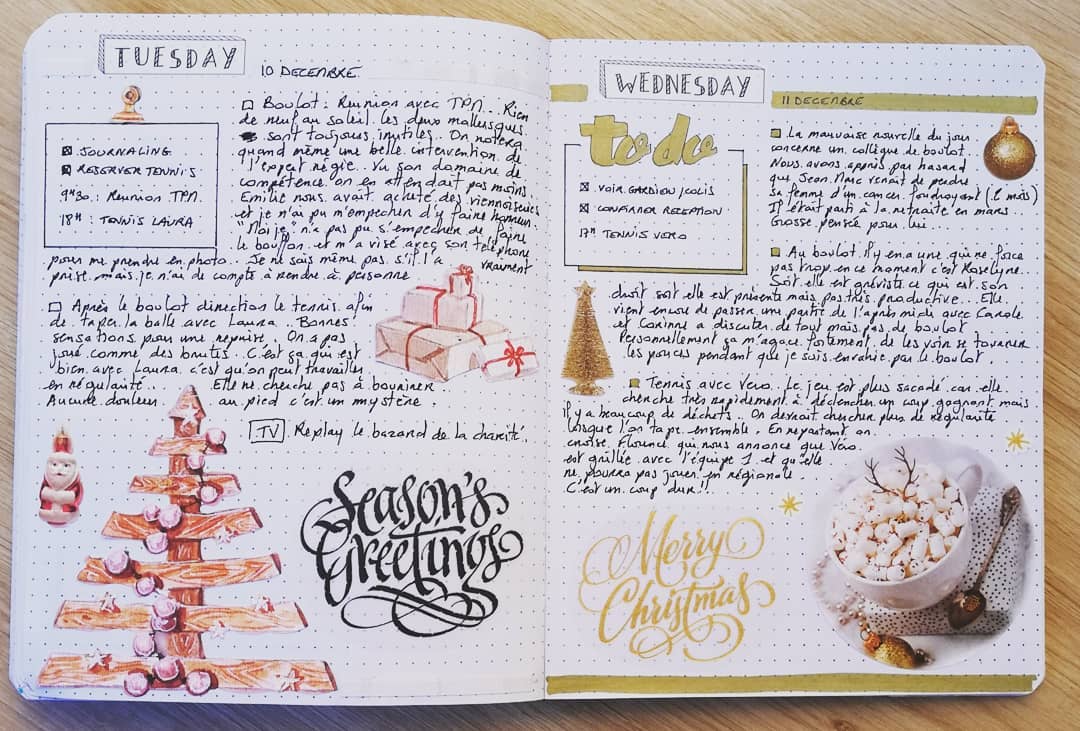 TUESDAY
10 DECEMBRE
JOURNALING
RESERVER TENNIS
9H30 : REUNION TPN
18H : TENNIS LAURA
Boulot : Reunion avec TPN.. Rien
de neuf au soleil. les deux
sont toujours inutiles.. On notera
quand même une belle intervention de
l'expert régie. Vu son domaine de
compétence on en attendait pas moins
Emilie nous avait acheté des viennoiseries
et je n'ai pu m'empecher d'y faire honneur.
"Moi je" n'a pas pu s'empecher de faire
le bouffon et m'a visé avec son téléphone
pour me prendre en photo.. Je ne sais même pas s'il l'a vraiment
prise mais je n'ai de compte à rendre à personne
Après le boulot direction le tennis afin
de taper la balle avec Laura.. Bonnes
sensations pour une reprise. On a pas
joué comme des brutes. C'est ça qui est
bien avec Laura c'est qu'on peut travailler
en régularité... Elle ne cherche pas à bouriner
Aucune douleur... au pied c'est un mystère.
TV Replay le bazard de la charité.
Season's
Greetings
WEDNESDAY
11 DECEMBRE
to do
VOIR GARDIEN / COLIS
CONFIRMER RECEPTION
17H TENNIS VERO
La mauvaise nouvelle du jour
concerne un collègue de boulot..
Nous avons appris par hasard
que Jean Marc venait de perdre
sa femme d'un cancer foudroyant (2 mois)
Il était parti à la retraite en mars...
Grosse pensée pour lui...
Au boulot il y en a une qui ne force
pas trop en ce moment c'est Roselyne...
Soit elle est gréviste ce qui est son
droit soit elle est présente mais pas très productive... Elle
vient encore de passer une partie de l'après midi avec Carole
et Corinne a discuter de tout mais pas de boulot
Personnellement ça m'agace fortement de les voir se tourner
les pouces pendant que je suis envahie par le boulot
Tennis avec Vero.. Le jeu est plus sacadé car elle
cherche très rapidement à déclencher un coup gagnant mais
il y a beaucoup de déchets... On devrait chercher plus de régularité
lorsque l'on tape ensemble. En repartant on
croise Florence qui nous annonce que Véro
est grillée avec l'équipe 1 et qu'elle
ne pourra pas jouer en régionale.
C'est un coup dur!!
Merry
Christmas